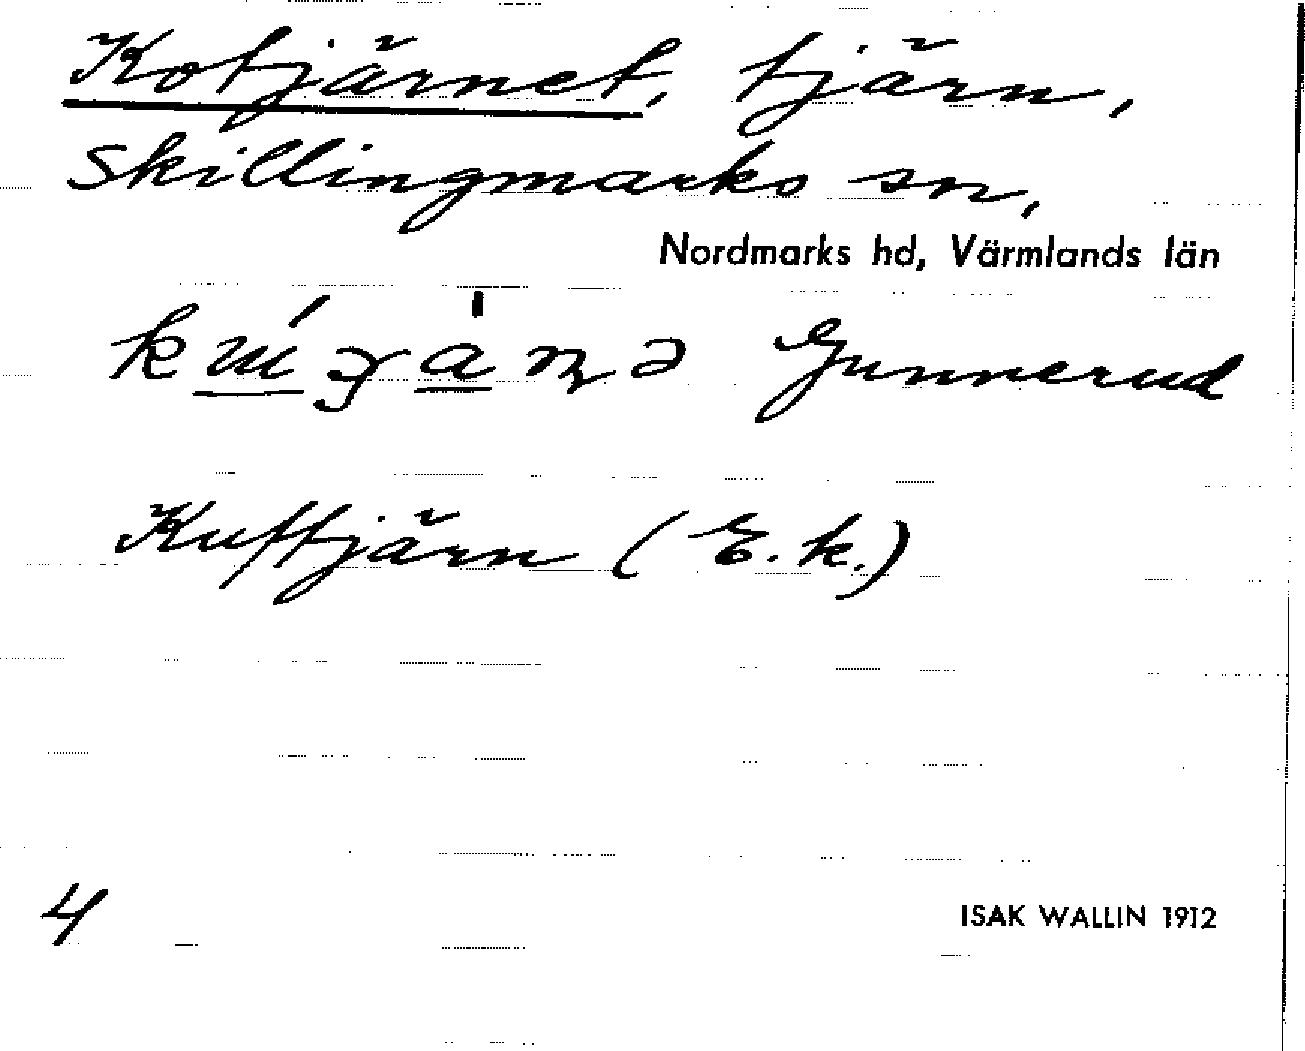 Kotjärnet, tjärn,
Skillingmarks sn,
Nordmarks hd, Värmlands län
Gunnerud
Kuttjärn (E.k.)
4
ISAK WALLIN 1912